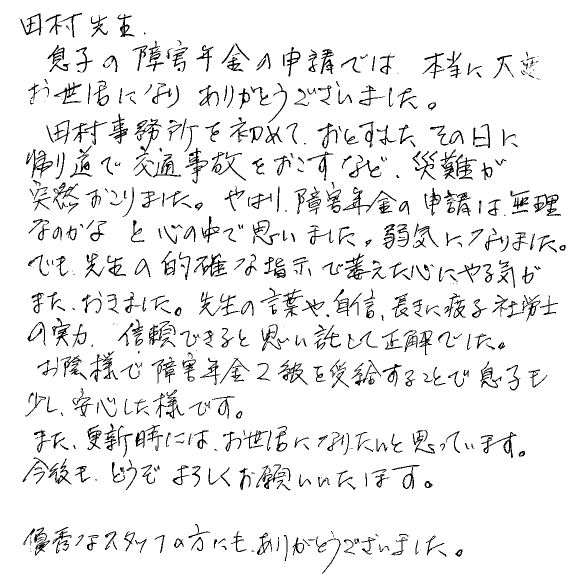 田村先生.
息子の障害年金の申請では、本当に大変
お世話になり ありがとうございました。
田村事務所を初めて、おとずれた その日に
帰り道で交通事故をおこすなど、災難が
突然おこりました。やはり、障害年金の申請は、無理
なのかな と心の中で思いました。弱気になりました。
でも、先生の的確な指示で萎えた心にやる気が
また、おきました。先生の言葉や、自信、長きに疲る社労士
の実力、信頼できると思い託して正解でした。
お陰様で障害年金2級を受給することで息子も
少し、安心した様です。
また、更新時には、お世話になりたいと思っています。
今後も、どうぞ よろしくお願いいたします。
優秀なスタッフの方にも、ありがとうございました。